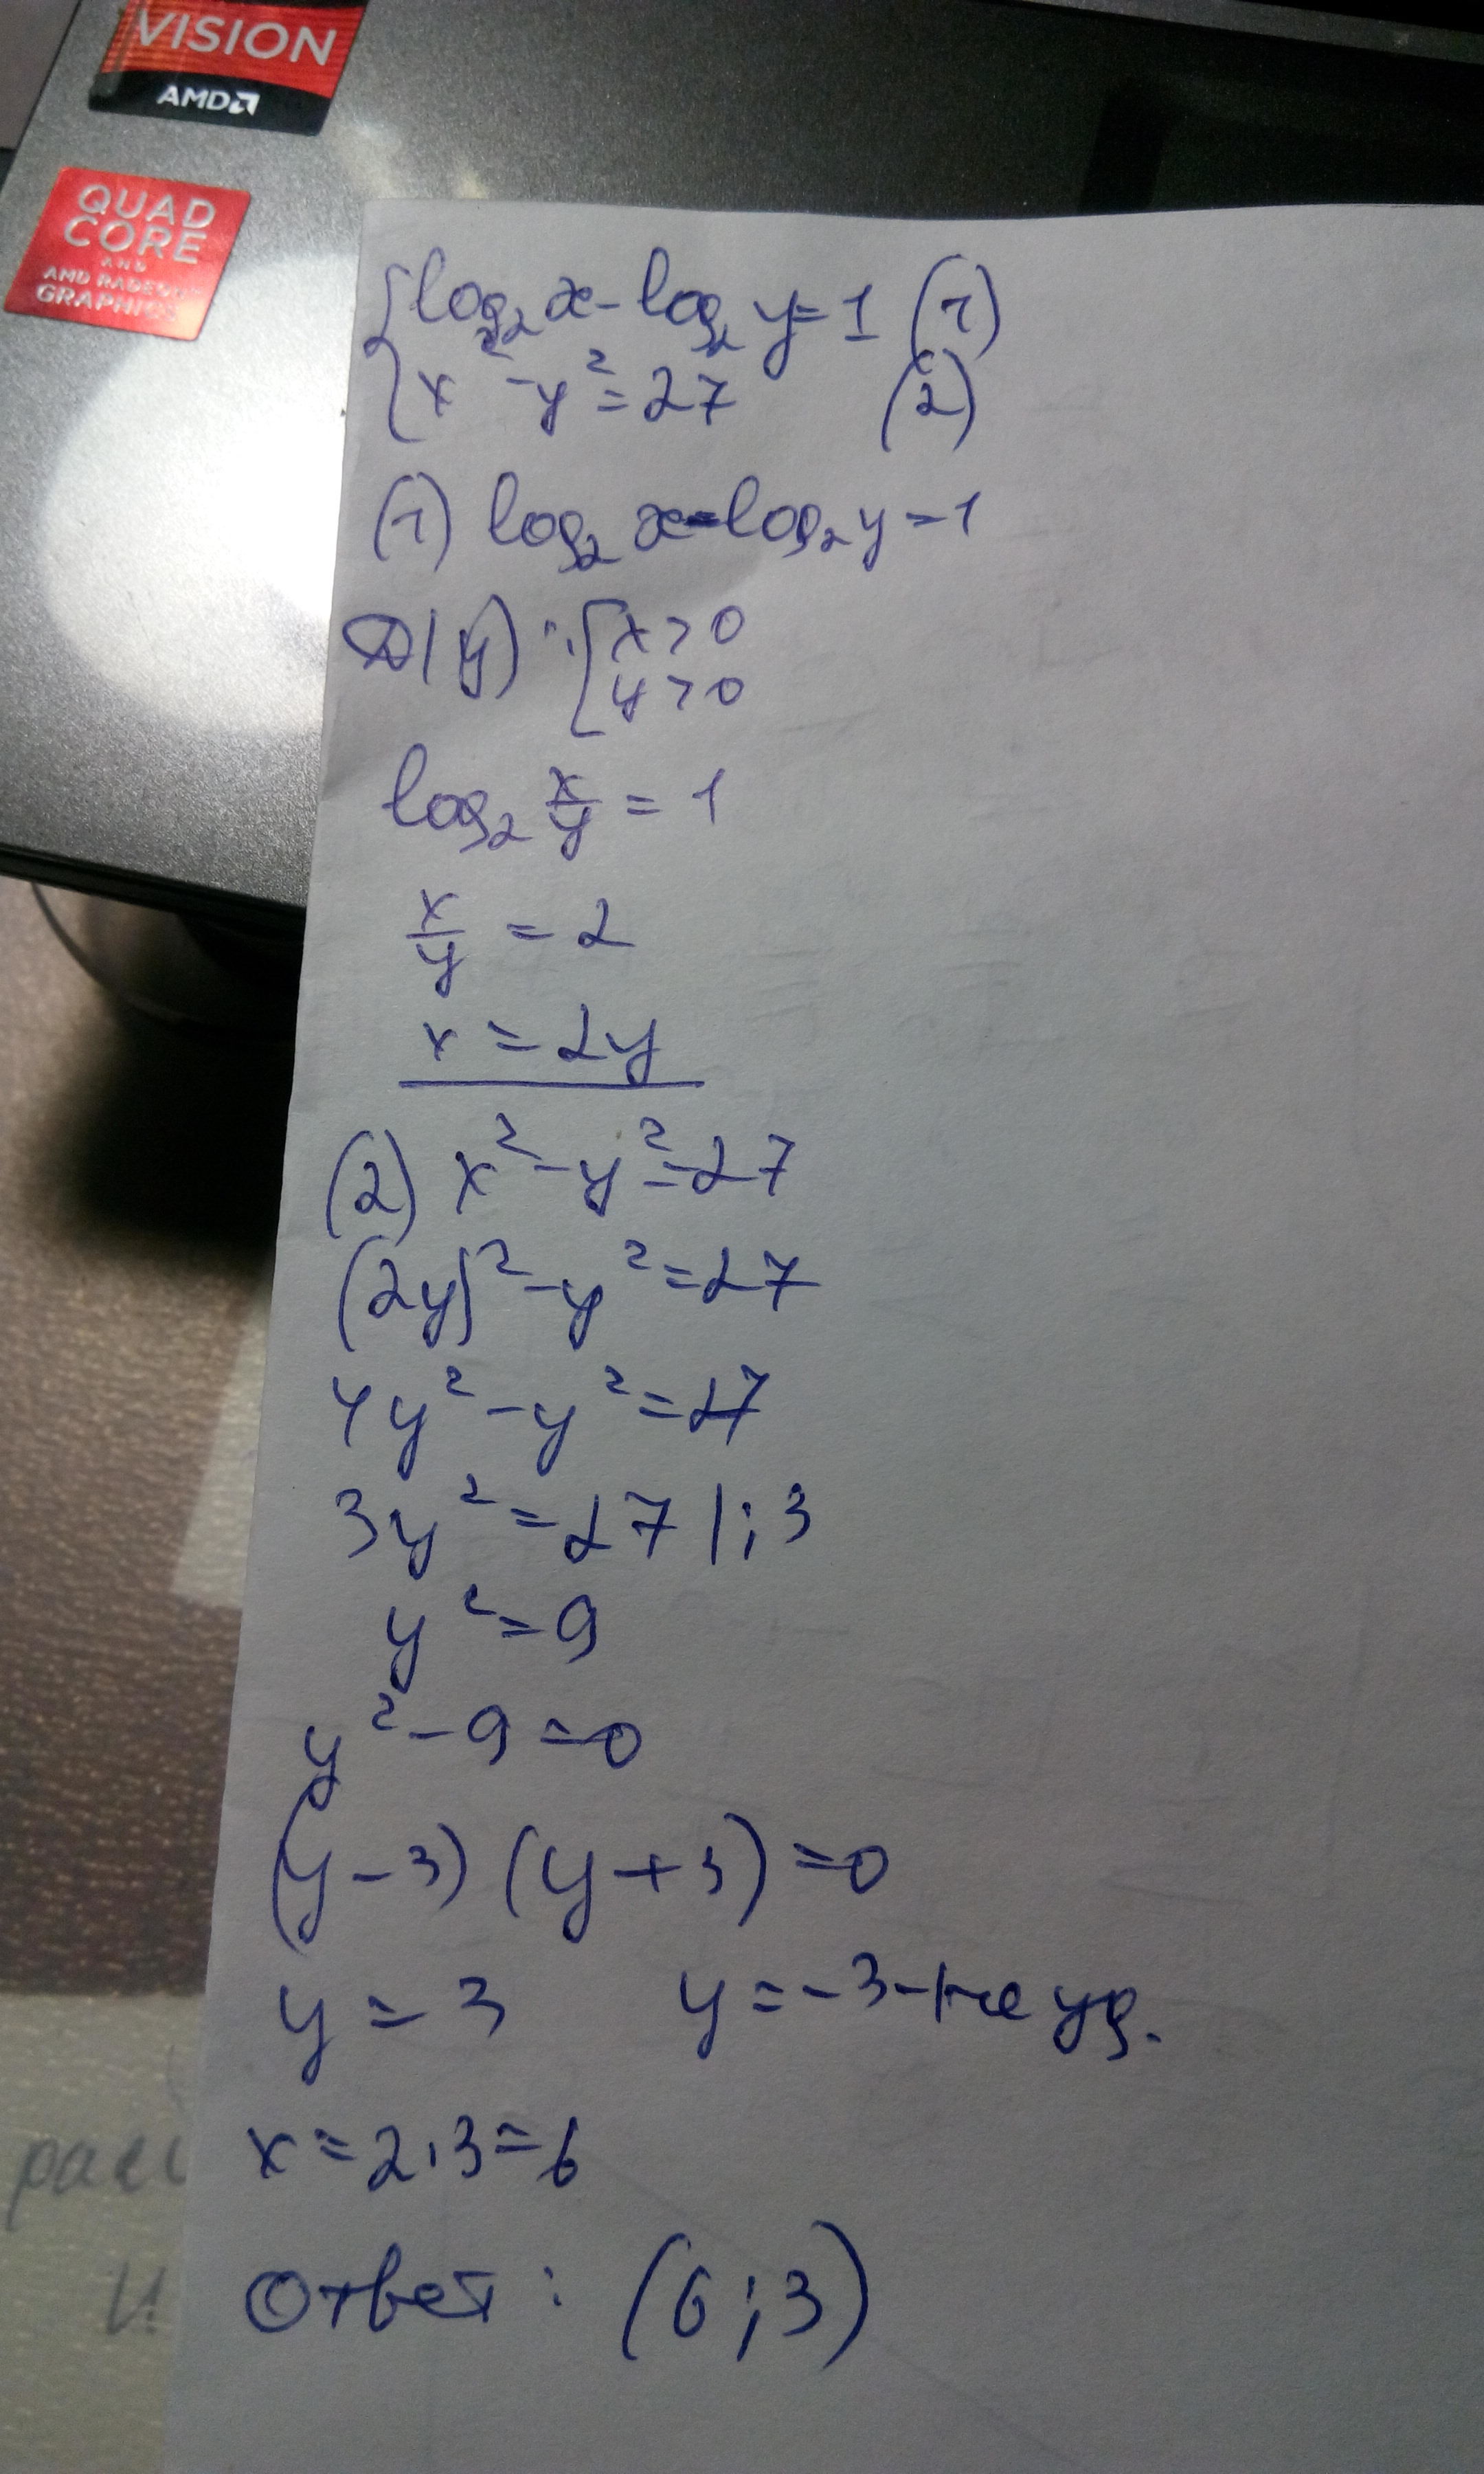 VISION
AMD
QUAD
CORE
AND
AMD RADEON
GRAPHICS
{log₂x-log₂y=1 (1)
{x²-y²=27 (2)
(1) log₂x-log₂y=1
D(y): {x>0
{y>0
log₂ x/y = 1
x/y = 2
x = 2y
(2) x²-y²=27
(2y)²-y²=27
4y²-y²=27
3y²=27 |:3
y²=9
y²-9=0
(y-3)(y+3)=0
y=3 y=-3-не уд.
x=2·3=6
Ответ: (6;3)